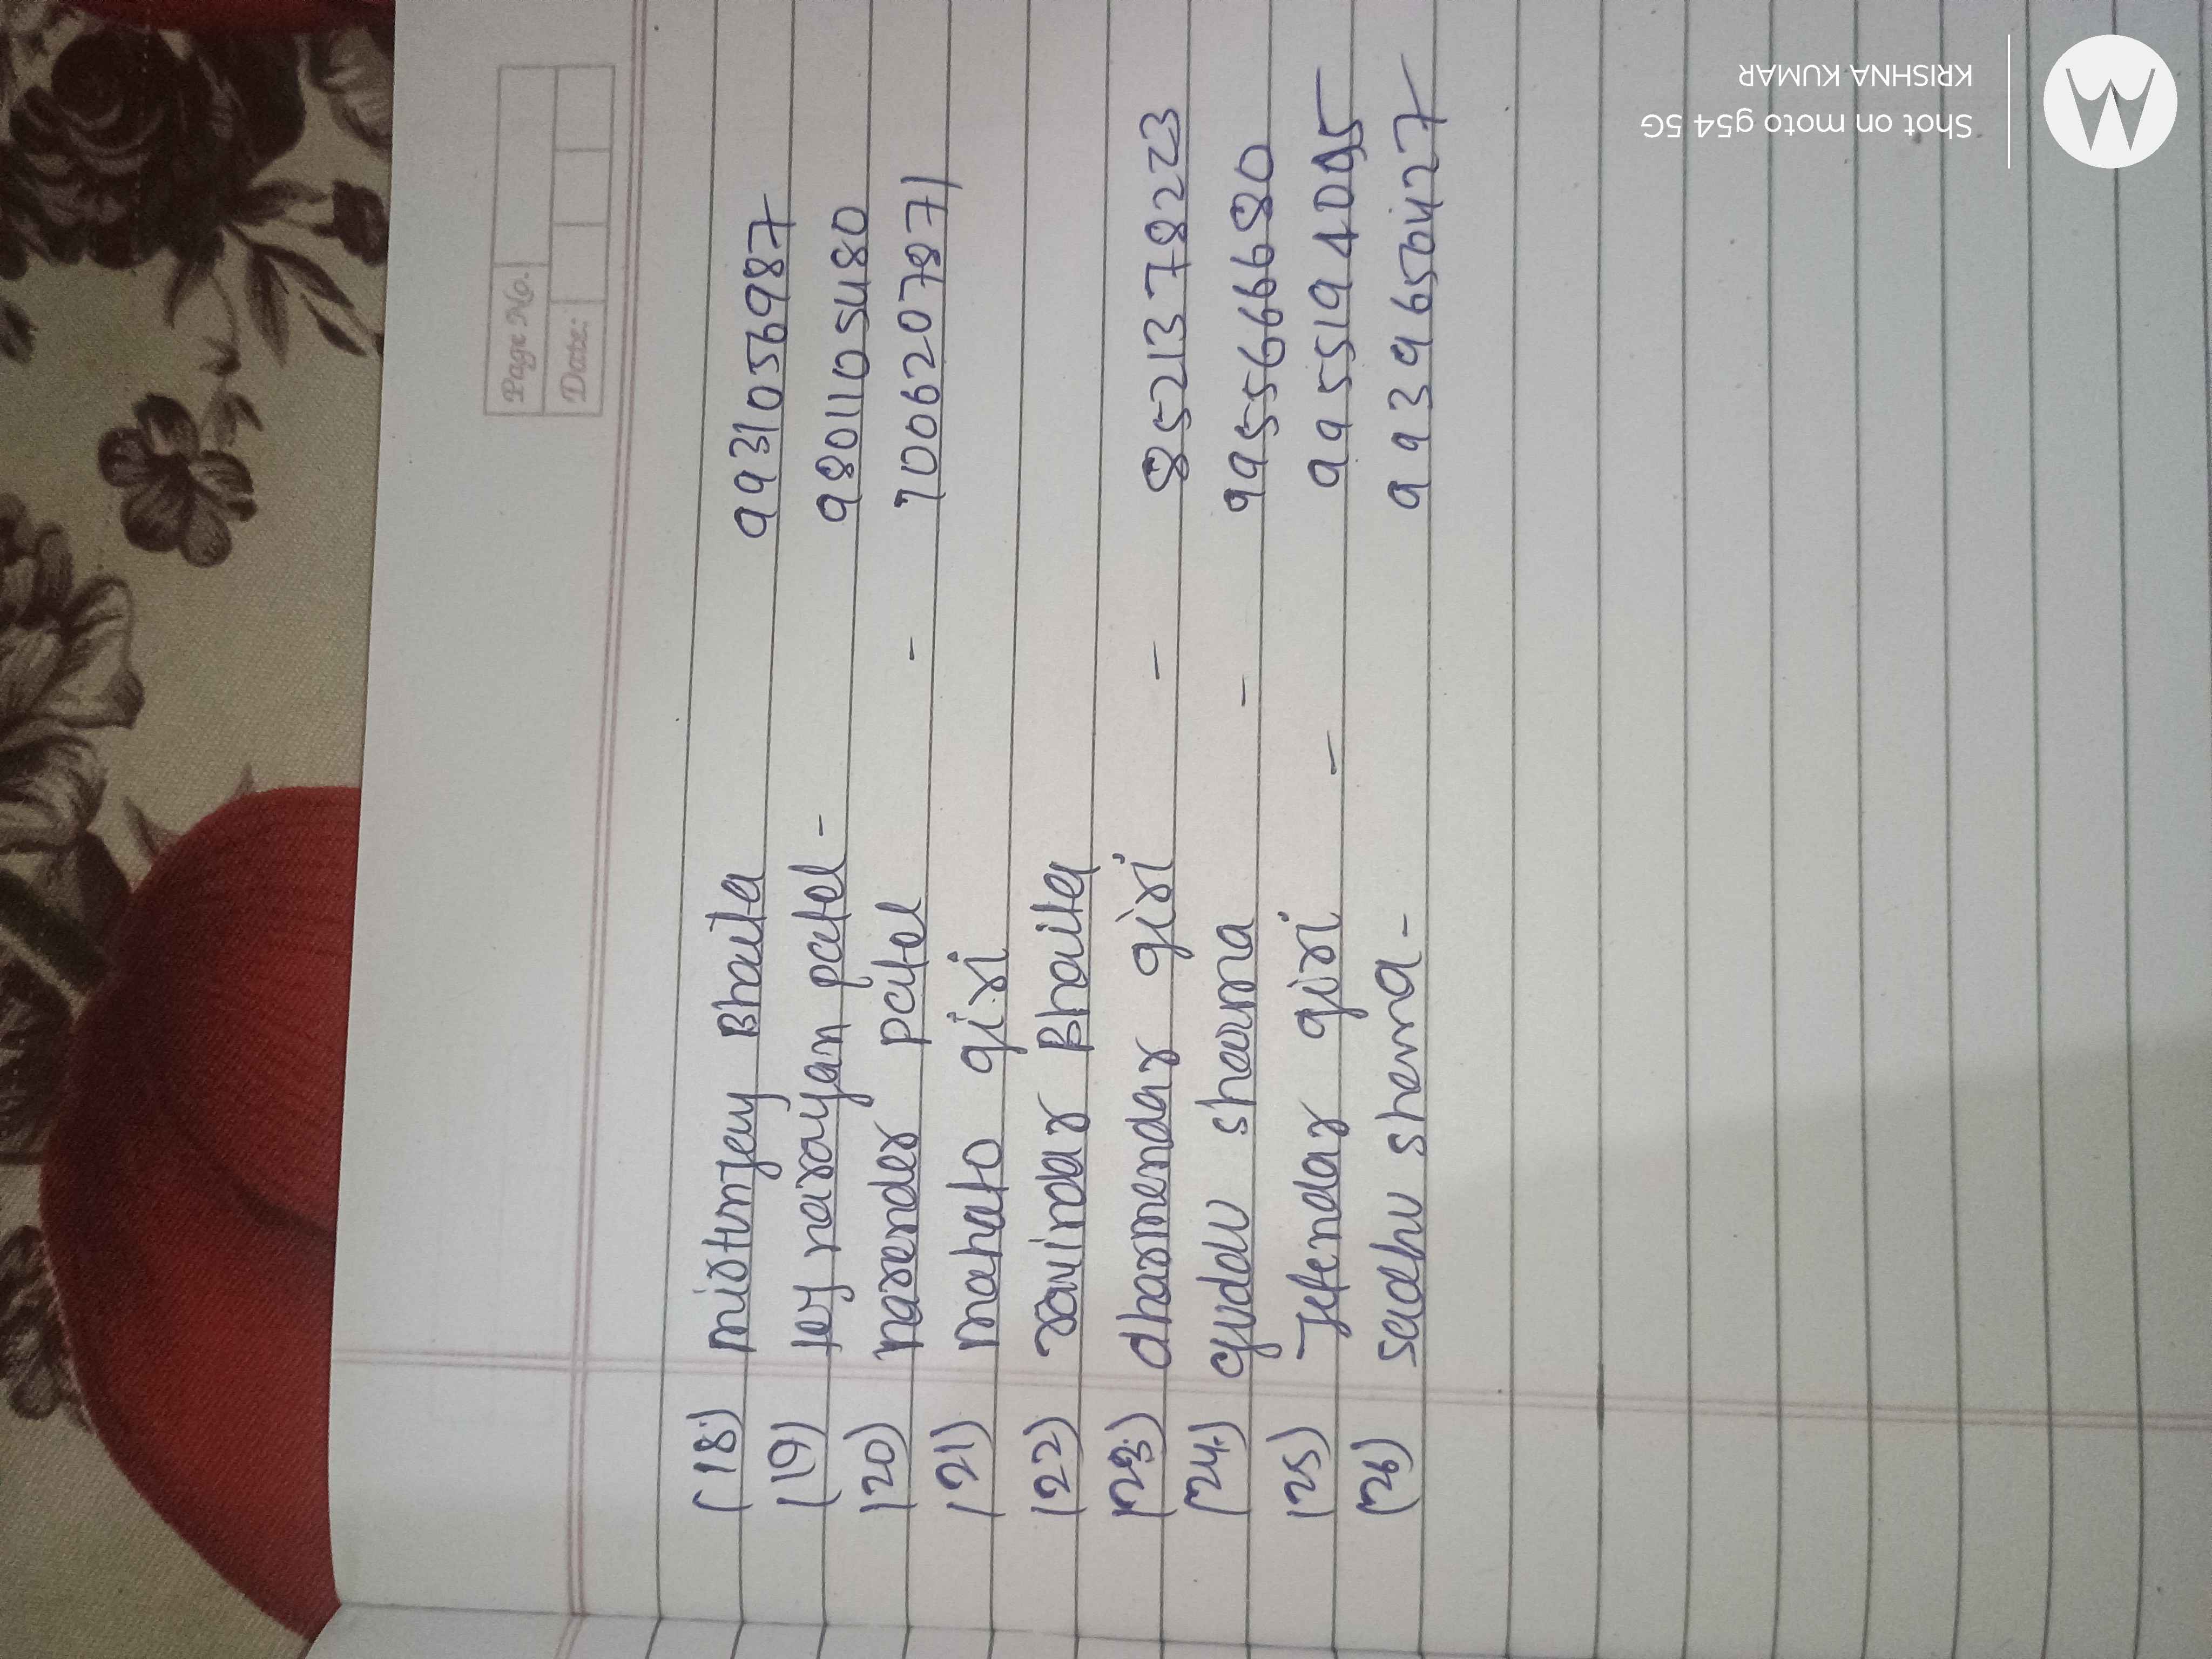 Page No.
Date:
(18.) mirtunjay Bhaita 9931056987
(19) Jay narayan patel - 9801105480
(20) narender patel - 7006207871
(21) mahato giri
(22) ravindar Bhaita
(23.) dharmendar giri - 8521378223
(24.) guddu sharma - 9955666680
(25) Jitendar giri - 9955194095
(26) sadhu sherma - 9939650427
Shot on moto g54 5G
KRISHNA KUMAR